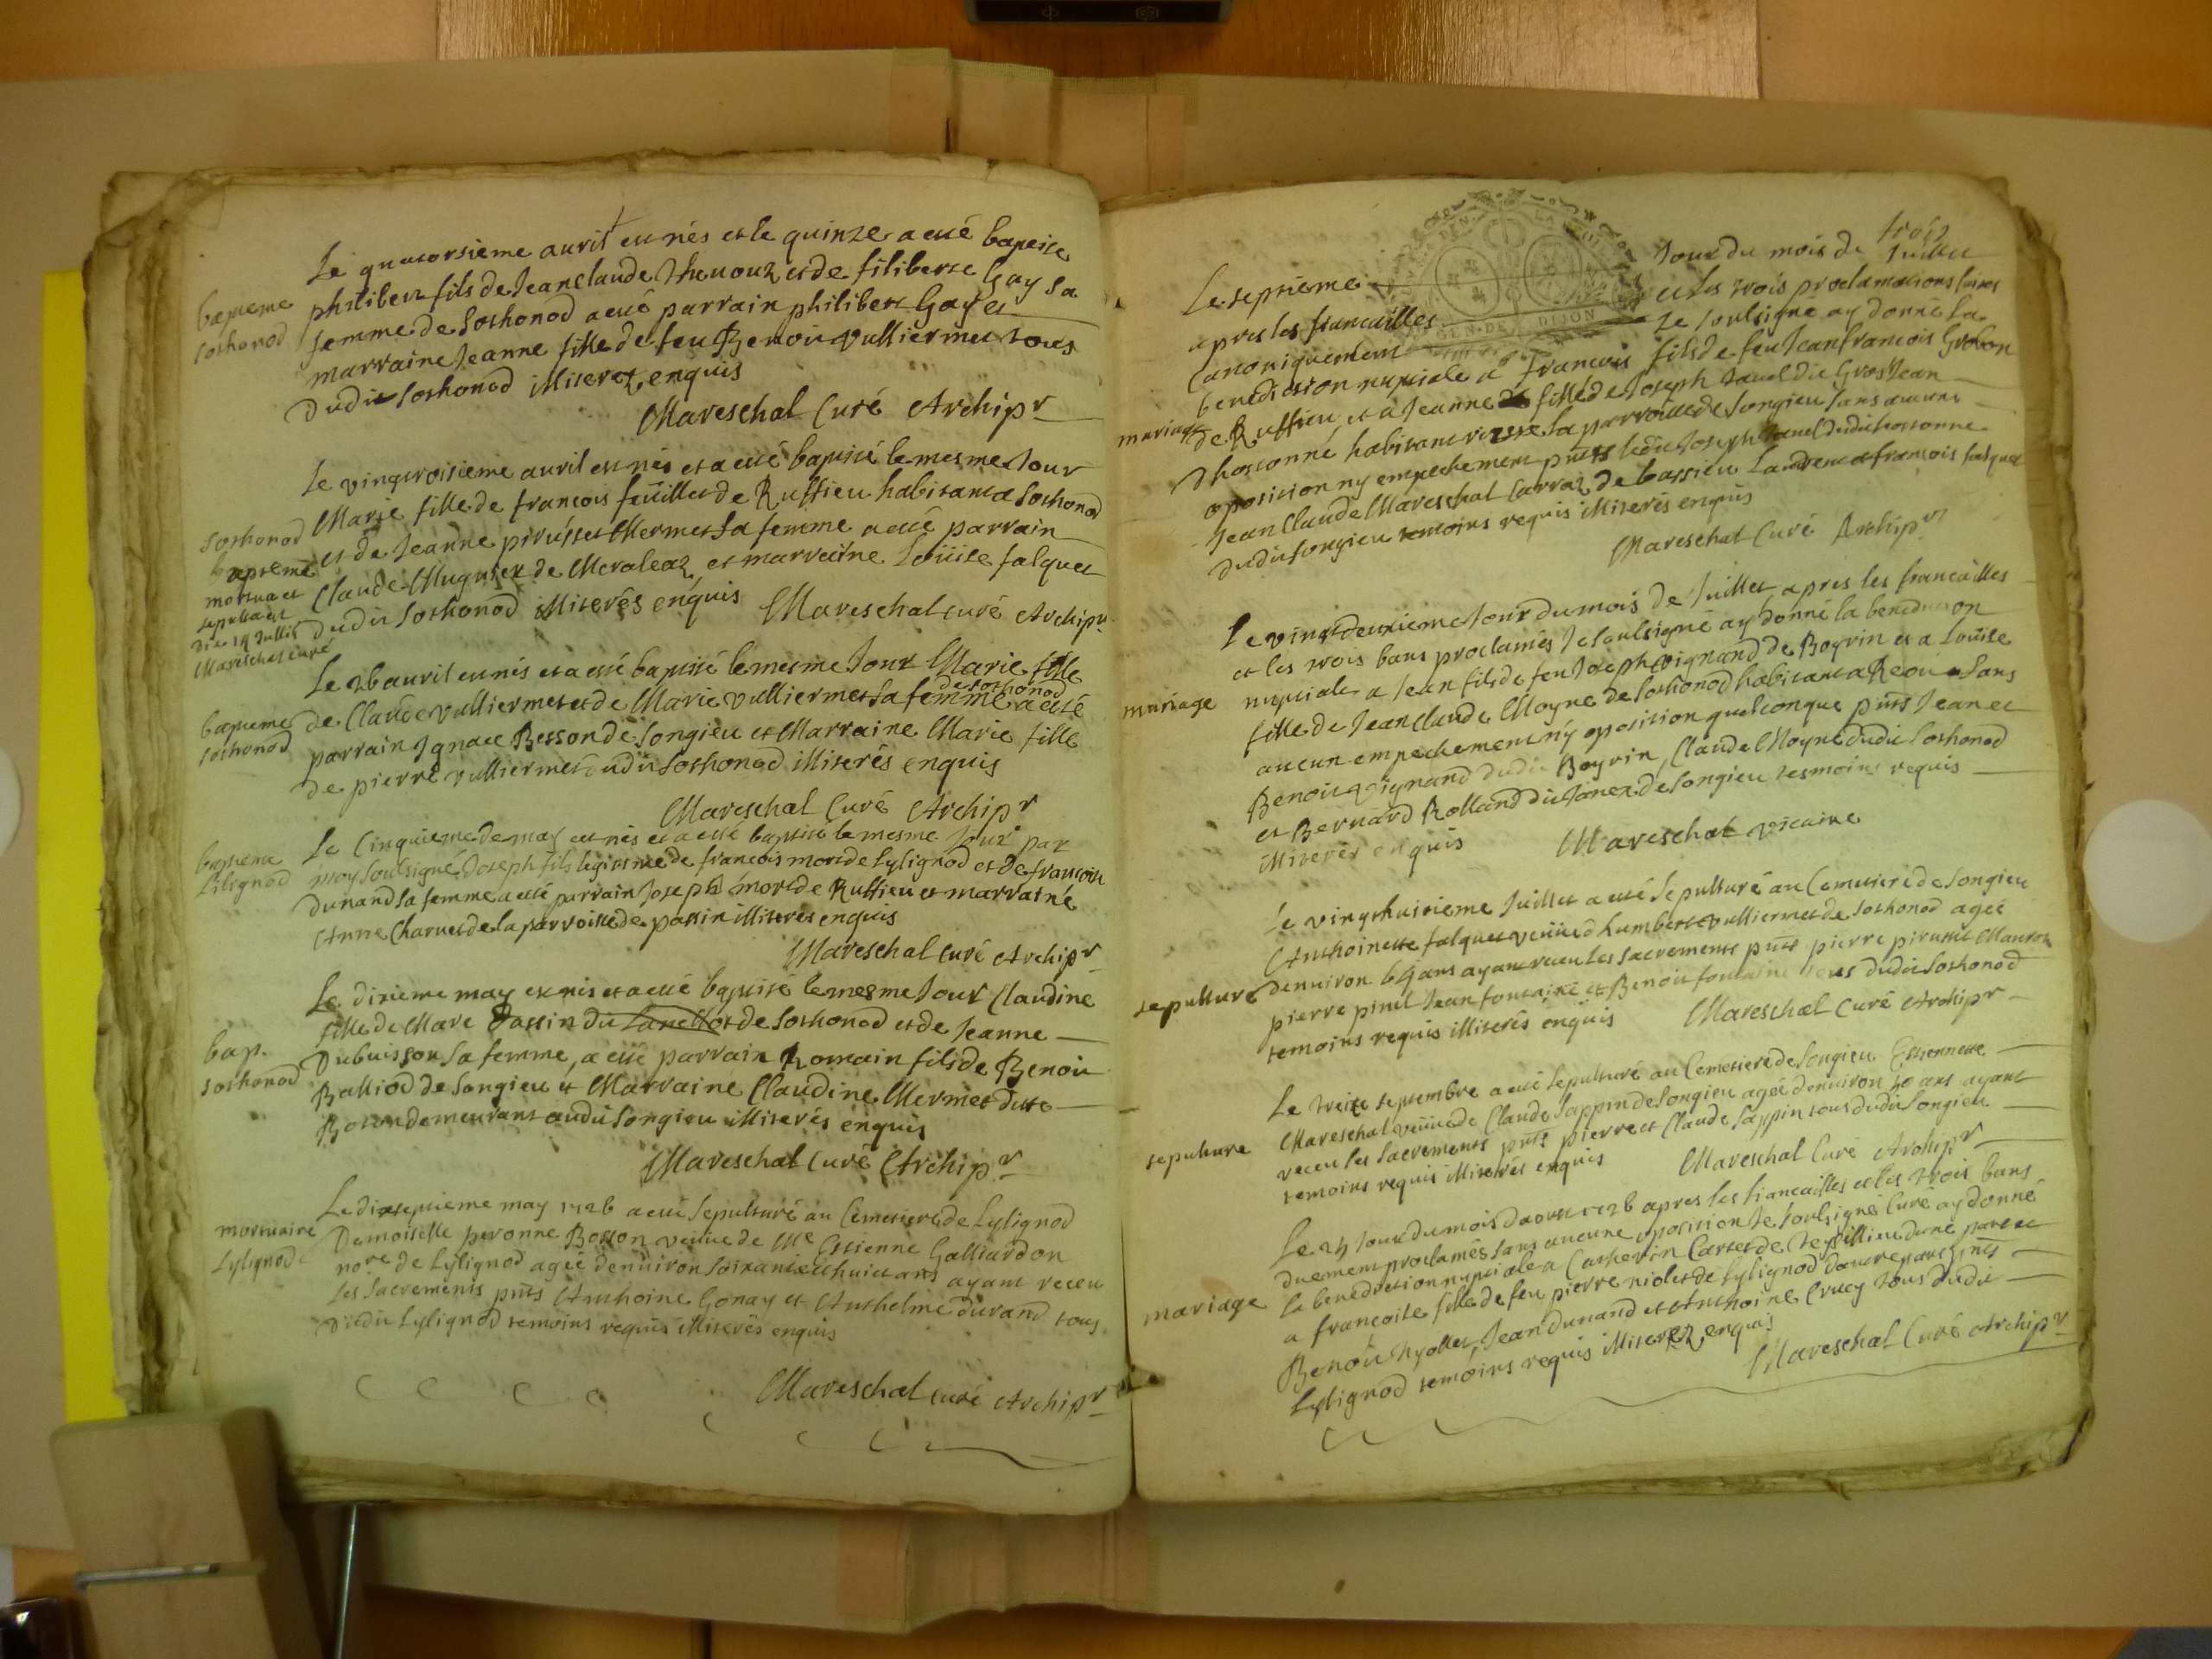 Le quatorsieme auril est nés et le quinze a esté baptise
bapteme
sothonod
philibert fils de Jeanclaude Thenouz et de filiberte Gay sa
femme de Sothonod a esté parrain philibert Gay et
marraine Jeanne fille de feu Benoit Vulliermet tous
dudit Sothonod illiterez enquis
Mareschal Curé Archipr
Le vingtroisieme auril est nés et a esté baptisé le mesme Jour
Sothonod
bapteme
mortua et
sepulta est
die 19 Jullis
Mareschal curé
Marie fille de francois feüillet de Ruffieu habitant a Sothonod
et de Jeanne Mermet sa femme a esté parrain
Claude et marraine Loüise falquet
dudit Sothonod illiterés enquis Mareschal curé Archipr
Le 26 auril est nés et a esté baptisé le mesme Jour Marie fille
bapteme
sothonod
de Sothonod
de Claude Vulliermet et de Marie Vulliermet sa femme a esté
parrain Ignace Besson de Songieu et Marraine Marie fille
de pierre Vulliermet dudit Sothonod illiterés enquis
Mareschal Curé Archipr
bapteme
Lilignod
Le Cinquieme de may est nés et a esté baptisé le mesme Jour par
moy soulsigné Joseph fils legitime de francois mort de Lylignod et de francoise
dunand sa femme a esté parrain Joseph mort de Ruffieu et marraine
Anne Charuet de la parroisse de passin illiterés enquis
Mareschal curé Archipr
Le dixieme may est nés et a esté baptisé le mesme Jour Claudine
fille de Marc passin dit de Sothonod et de Jeanne
bap.
sothonod
Dubuisson sa femme, a esté parrain Romain fils de Benoit
Balliod de Songieu et Marraine Claudine Mermet ditte
demeurant audit Songieu illiterés enquis
Mareschal Curé Archipr
Le dixseptieme may 1726 a esté Sepulturé au Cemetiere de Lylignod
mortuaire
Lylignod
Demoiselle peronne Bosson veüue de Me Estienne Galliardon
nore de Lylignod agée denuiron soixante et huict ans ayant receu
les Sacrements pnts Anthoine Gonay et Anthelme durand tous
dudit Lylignod temoins requis illiterés enquis
Mareschal curé Archipr
trois
Le septieme Jour du mois de Juillet
GEN. DE DIJON
apres les fiancailles et les trois proclamations faites
Canoniquement Je soulsigné ay donné la
mariage
benediction nuptiale a francois fils de feu Jean francois Grobon
de Ruffieu et a Jeanne fille de Joseph Jauel dit Gros Jean
dhotonne habitant riere la parroisse de Songieu sans aucune
oposition ny empechement pnts ledit Joseph Jauel dudit hotonne
Jean Claude Mareschal Carraz de bassieu et francois falquet
dudit Songieu temoins requis illiterés enquis
Mareschal Curé Archipr
Le vingtdeuxieme Jour du mois de Juillet apres les fiancailles
et les trois bans proclamés Je soulsigné ay donné la benediction
mariage
nuptiale a Jean fils de feu Joseph Vignand de Boyrin et a Loüise
fille de Jean Claude Moyne de Sothonod habitant a sans
aucun empechement ny oposition quelconque pnts Jean et
Benoit Vignand dudit Boyrin, Claude Moyne dudit Sothonod
et Bernard Rolland dit Janex de Songieu tesmoins requis
illiterés enquis Mareschal vicaire
Le vingthuitieme Juillet a esté Sepulturé au Cemetiere de Songieu
Anthoinette falquet veüue d humbert Vulliermet de Sothonod agée
sepulture
denuiron 64 ans ayant receu les Sacrements pnts pierre
pierre pinet Jean fontaine et Benoit fontaine tous dudit Sothonod
temoins requis illiterés enquis Mareschal Curé Archipr
Le treize septembre a esté Sepulturé au Cemetiere de Songieu Estiennette
sepulture
Mareschal veüue de Claude Sappin de Songieu agée denuiron 70 ans ayant
receu les Sacrements pnts pierre et Claude Sappin tous dudit Songieu
temoins requis illiterés enquis Mareschal Curé Archipr
Le 24 Jour du mois daoust 1726 apres les fiancailles et les trois bans
duement proclamés sans aucune oposition Je soulsigné Curé ay donné
mariage
la benediction nuptiale a Cathevin Carret de dune part et
a francoise fille de feu pierre niolet de Lylignod dautre part pnts
Benoit nyollet, Jean dunand et Anthoine Crucy tous dudit
Lylignod temoins requis illiterez enquis
Mareschal Curé Archipr